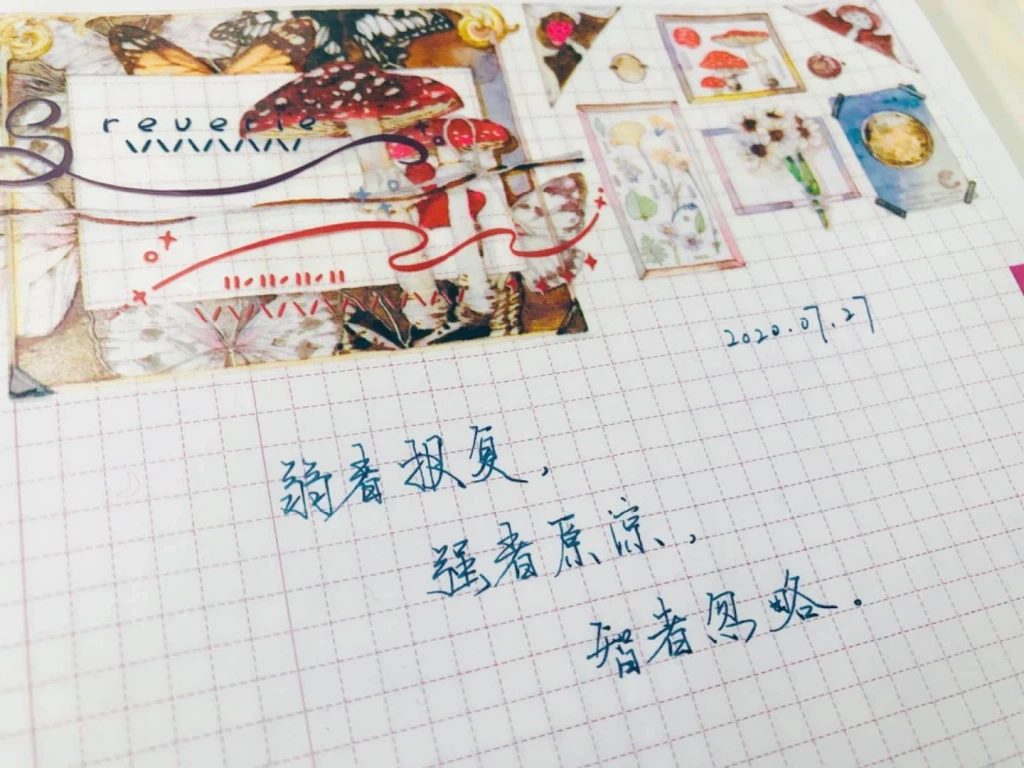 reverie
2020.07.27
弱者报复,
强者原凉,
智者忽略.